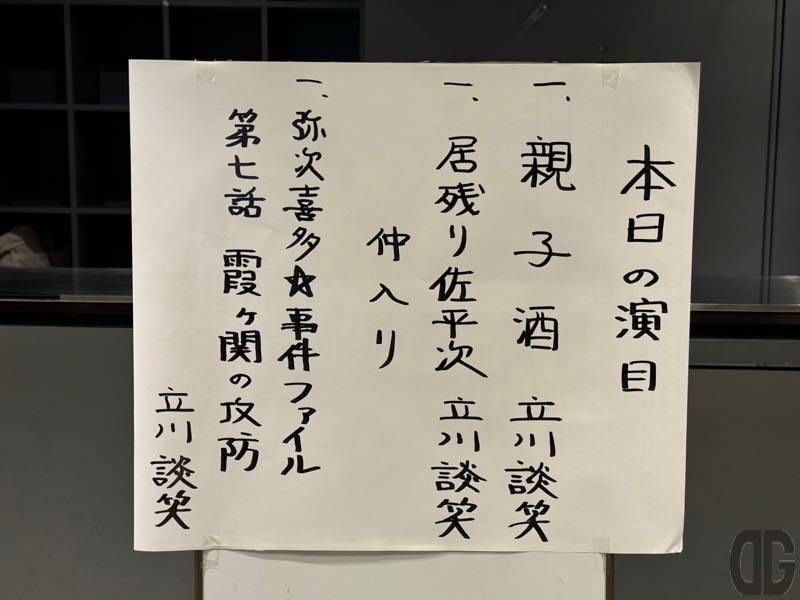 本日の演目
一、親子酒 立川談笑
一、居残り佐平次 立川談笑
仲入り
一、弥次喜多☆事件ファイル
第七話 霞ヶ関の攻防
立川談笑
DG